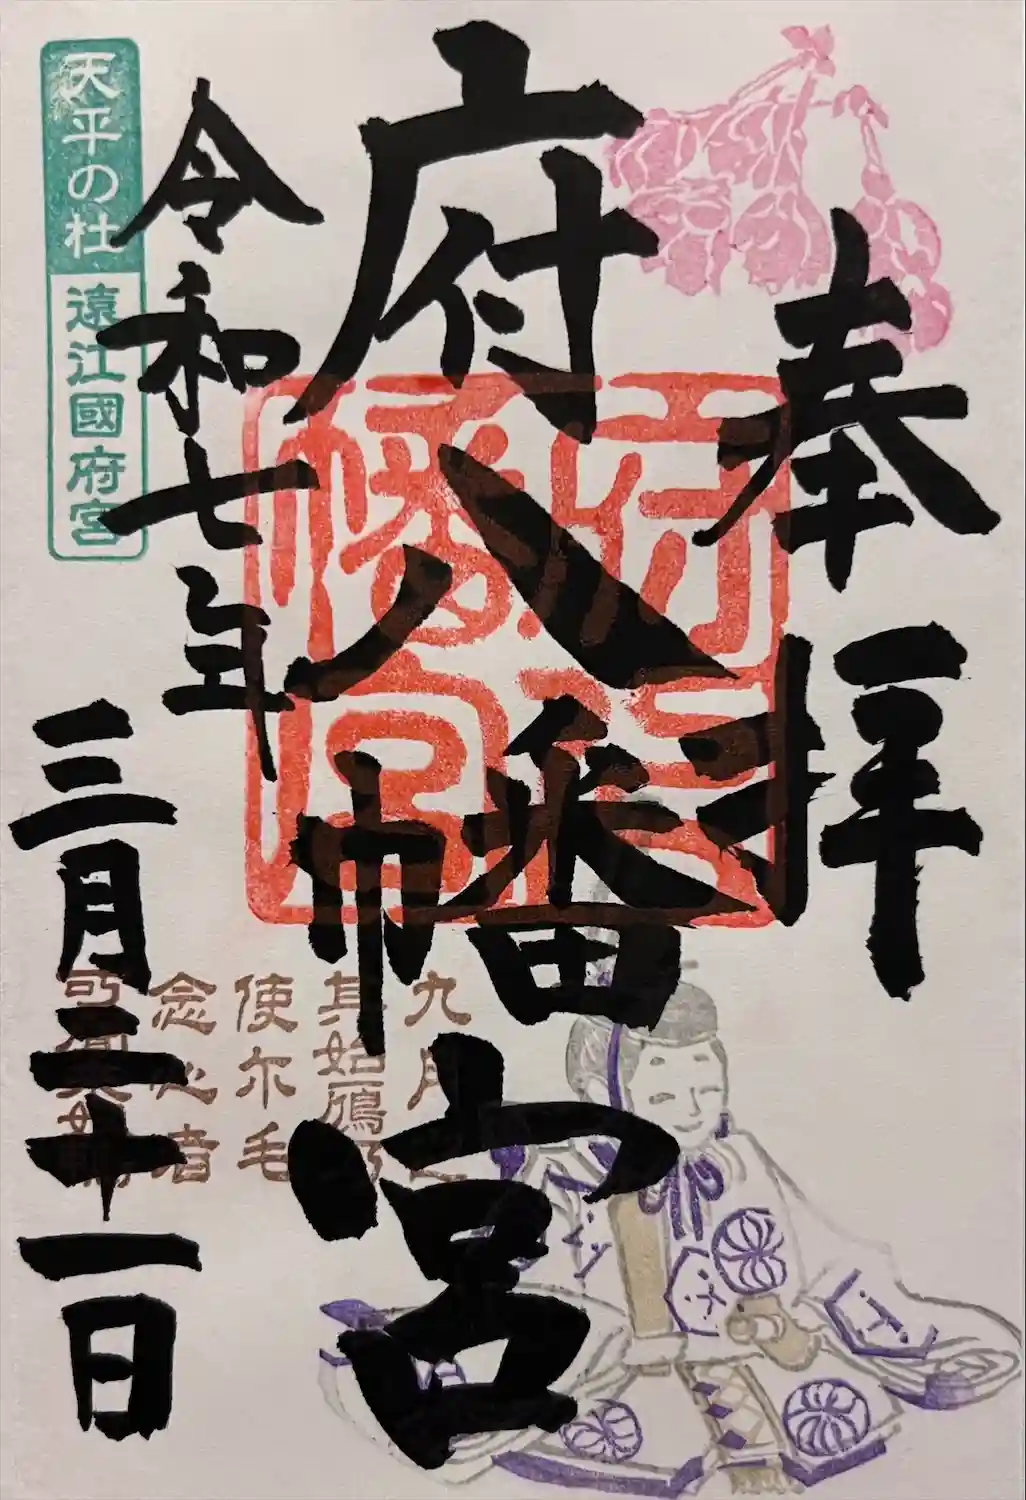 奉拝
府八幡宮
令和七年
三月二十一日
天平の杜
遠江國府宮
府八
幡宮
九月
其始鴈乃
使尓毛
念心者
可聞